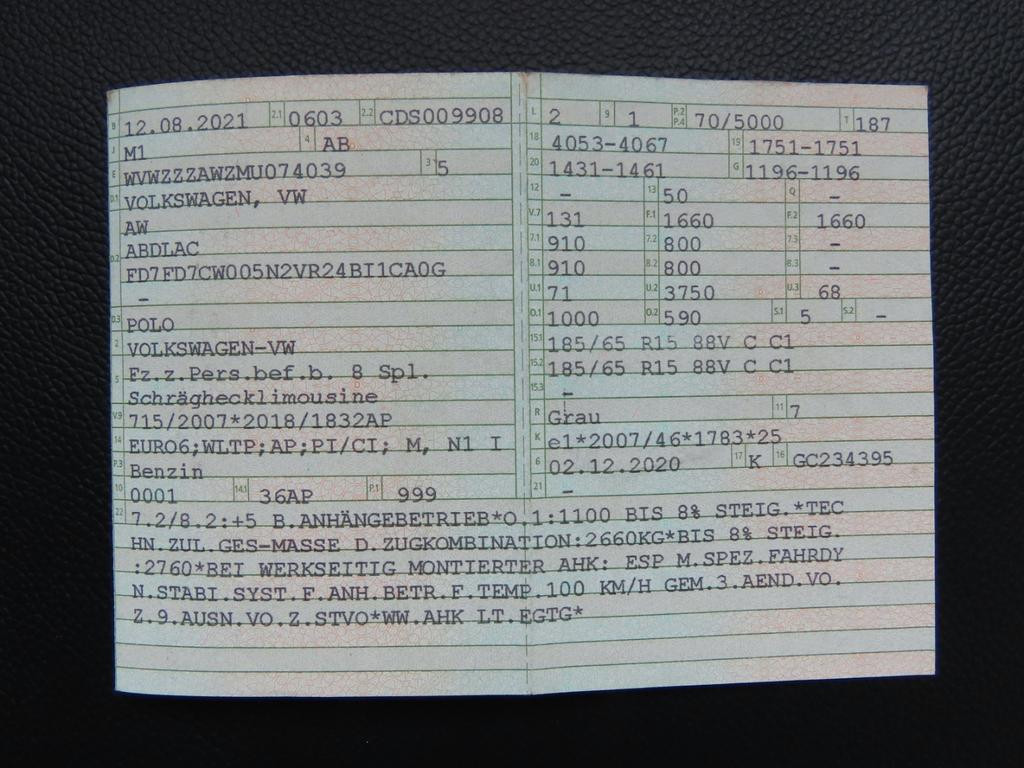 B 12.08.2021 2.1 0603 2.2 CDS009908
J M1 4 AB
E WVWZZZAWZMU074039 3 5
D.1 VOLKSWAGEN, VW
AW
D.2 ABDLAC
FD7FD7CW005N2VR24BI1CA0G
–
D.3 POLO
2 VOLKSWAGEN-VW
5 Fz.z.Pers.bef.b. 8 Spl.
Schräghecklimousine
V.9 715/2007*2018/1832AP
14 EURO6;WLTP;AP;PI/CI; M, N1 I
P.3 Benzin
10 0001 14.1 36AP P.1 999
L 2 9 1 P.2 P.4 70/5000 T 187
18 4053-4067 19 1751-1751
20 1431-1461 G 1196-1196
12 – 13 50 Q –
V.7 131 F.1 1660 F.2 1660
7.1 910 7.2 800 7.3 –
8.1 910 8.2 800 8.3 –
U.1 71 U.2 3750 U.3 68
O.1 1000 O.2 590 S.1 5 S.2 –
15.1 185/65 R15 88V C C1
15.2 185/65 R15 88V C C1
15.3 –
R Grau 11 7
K e1*2007/46*1783*25
6 02.12.2020 17 K 16 GC234395
21 –
22 7.2/8.2:+5 B.ANHÄNGEBETRIEB*O.1:1100 BIS 8% STEIG.*TEC
HN.ZUL.GES-MASSE D.ZUGKOMBINATION:2660KG*BIS 8% STEIG.
:2760*BEI WERKSEITIG MONTIERTER AHK: ESP M.SPEZ.FAHRDY
N.STABI.SYST.F.ANH.BETR.F.TEMP.100 KM/H GEM.3.AEND.VO.
Z.9.AUSN.VO.Z.STVO*WW.AHK LT.EGTG*